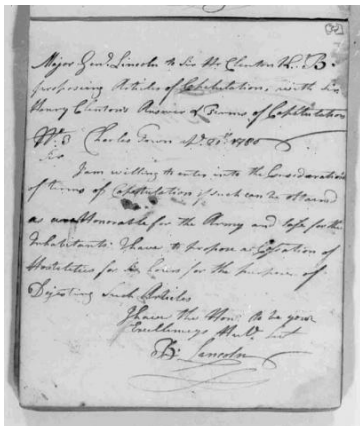 Major Genl. Lincoln to Sir Hy. Clinton K. B.
proposing Articles of Capitulation, with Sir
Henry Clinton's Answer & Terms of Capitulation
Charles Town Apl. 21st. 1780
Sir
I am willing to enter into the Consideration
of terms of Capitulation if such can be obtained
as are Honorable for the Army and safe for the
Inhabitants. I have to propose a Cessation of
Hostilities for Six hours for the purpose of
Digesting Such Articles
I have the Honr. to be your
Excellencys
B. Lincoln